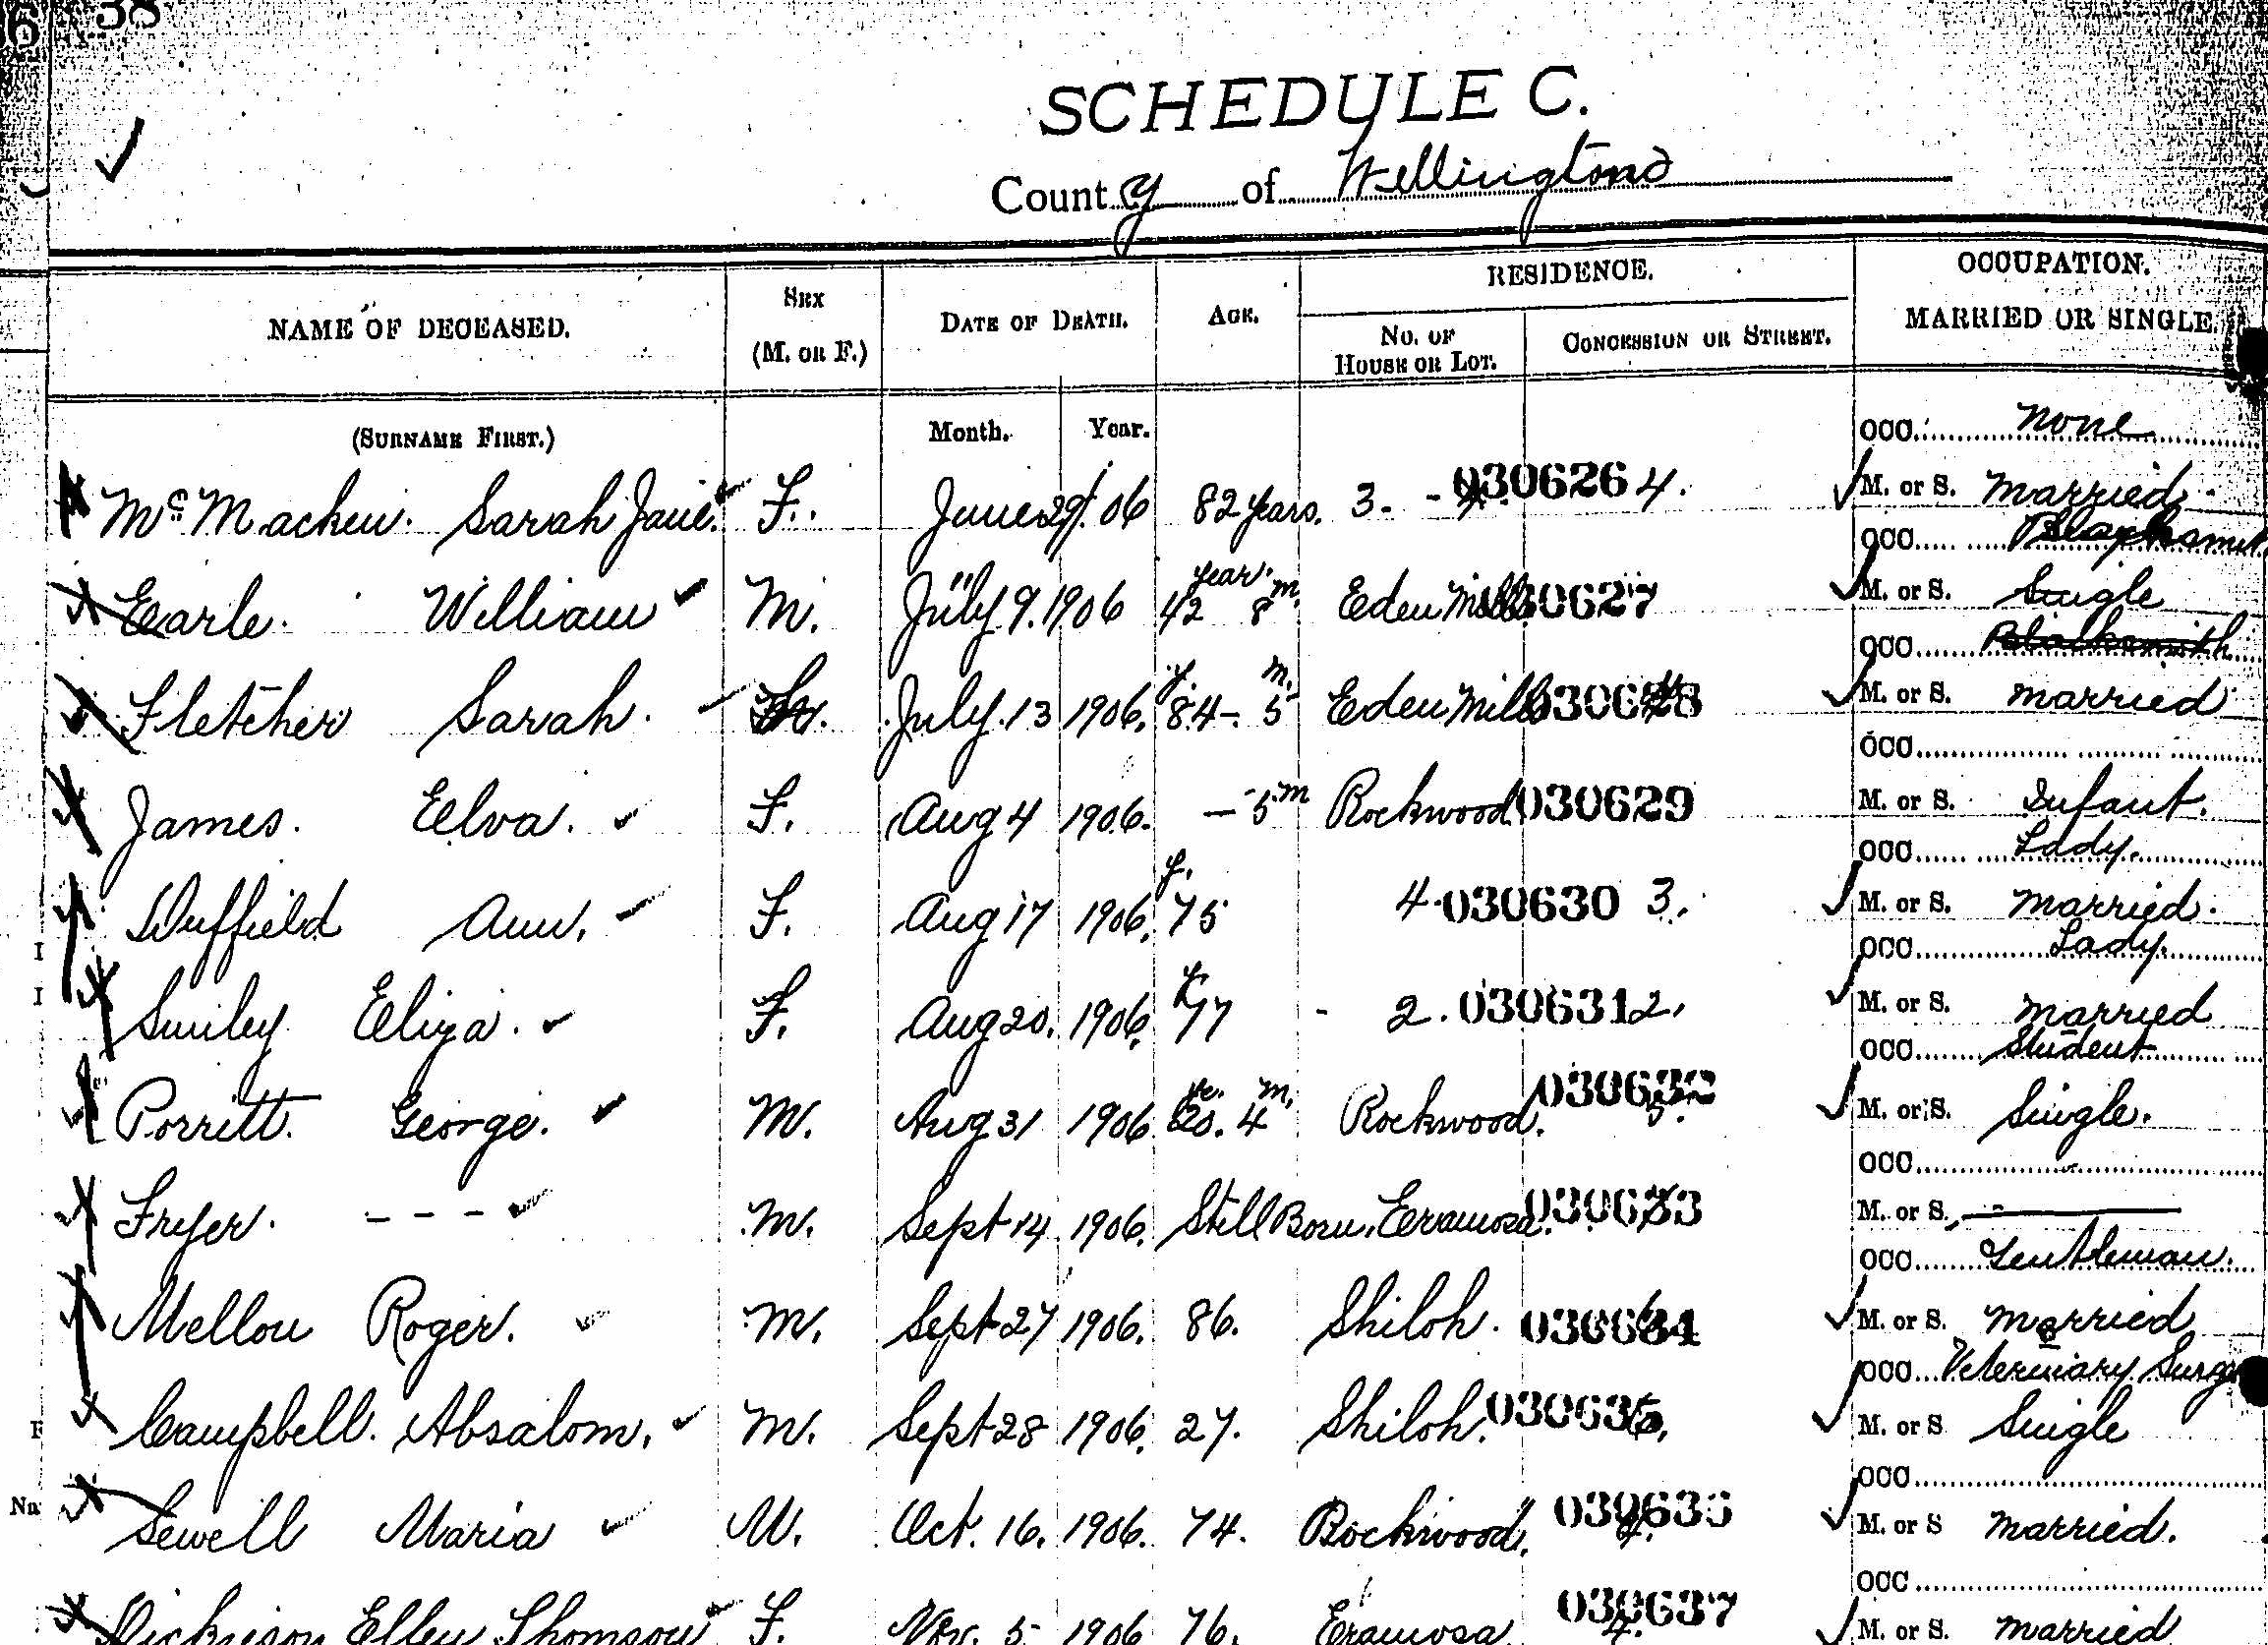 6 38
SCHEDULE C.
County of Wellington
NAME OF DECEASED. SEX (M. OR F.) DATE OF DEATH. AGE. RESIDENCE. OCCUPATION.
No. OF HOUSE OR LOT. CONCESSION OR STREET. MARRIED OR SINGLE.
(SURNAME FIRST.) Month. Year. OCC. None
McMacken. Sarah Jane. F. June 29 06 82 years. 3. - 030626 4. M. or S. Married
OCC. Blacksmit
Earle. William M. July 9. 1906 42 year. 8 m. Eden Mills 030627 M. or S. Single
OCC. Blacksmith
Fletcher Sarah. July. 13 1906. y. 84-. 5 m. Eden Mills 030628 M. or S. Married
OCC.
James. Elva. F. Aug 4 1906. - 5 m Rockwood 030629 M. or S. Infant.
OCC. Lady.
Duffield Ann. F. Aug 17 1906. y. 75 4. 030630 3. M. or S. Married.
OCC. Lady.
Smiley Eliza. F. Aug 20. 1906. y. 77 - 2. 030631 2. M. or S. Married
OCC. Student
Porritt. George. M. Aug 31 1906 20. 4 m. Rockwood. 030632 5. M. or S. Single.
OCC.
Fryer. - - - M. Sept 14 1906. Still Born. Eramosa. 030633 M. or S. -
OCC. Gentleman.
Mellou Roger. M. Sept 27 1906. 86. Shiloh. 030634 M. or S. Married
OCC. Veterinary Surge
Campbell. Absalom. M. Sept 28 1906. 27. Shiloh. 030635 M. or S Single
OCC.
Sewell Maria M. Oct. 16. 1906. 74. Rockwood. 030636 4. M. or S Married.
OCC.
Dickieson Ellen Thomson F. Nov. 5 1906 76. Eramosa 030637 4. M. or S. Married